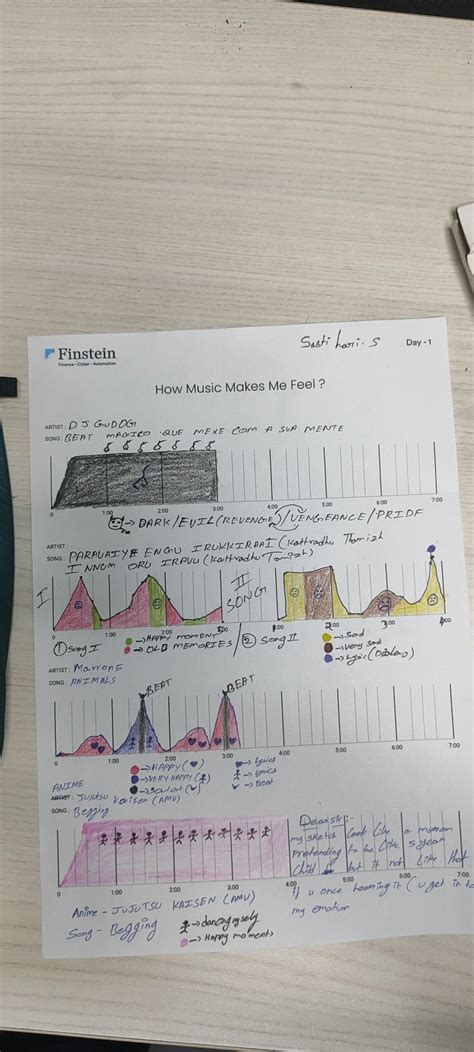 Finstein
Finance · Cyber · Automation
Sasti hari. S
Day - 1
How Music Makes Me Feel ?
ARTIST: DJ GUDOG
SONG: BEAT MAGICO QUE MEXE COM A SUA MENTE
0 1:00 2:00 3:00 4:00 5:00 6:00 7:00
→ DARK/EVIL(REVENGE)/VENGEANCE/PRIDE
ARTIST:
SONG: PARAVAIYE ENGU IRUKKIRAAI (Kattradhu Thamizh
INNUM ORU IRAVU (Kattradhu Tamizh)
I II SONG
0 1:00 2:00 1 2 3
① Song I → HAPPY MOMENT
→ OLD MEMORIES / ② Song II
→ Sad
→ Very sad
→ Lyric (Dialog)
ARTIST: Marrone
SONG: ANIMALS
BEAT BEAT
0 1:00 2:00 3:00 4:00 5:00 6:00 7:00
→ HAPPY → Lyrics
→ VERY HAPPY → Lyrics
→ Beat
ANIME
ARTIST: JUJUTSU KAISEN (AMV)
SONG: Begging
0 1:00 2:00 3:00 4:00 5:00 6:00 7:00
Dear sir:-
my sketch look like a
Pretending to be like 5 year
child but it not like that
if u once hearing it (u get in to
my emotion
Anime - JUJUTSU KAISEN (AMV)
Song - Begging
→ dancing myself
→ Happy moments